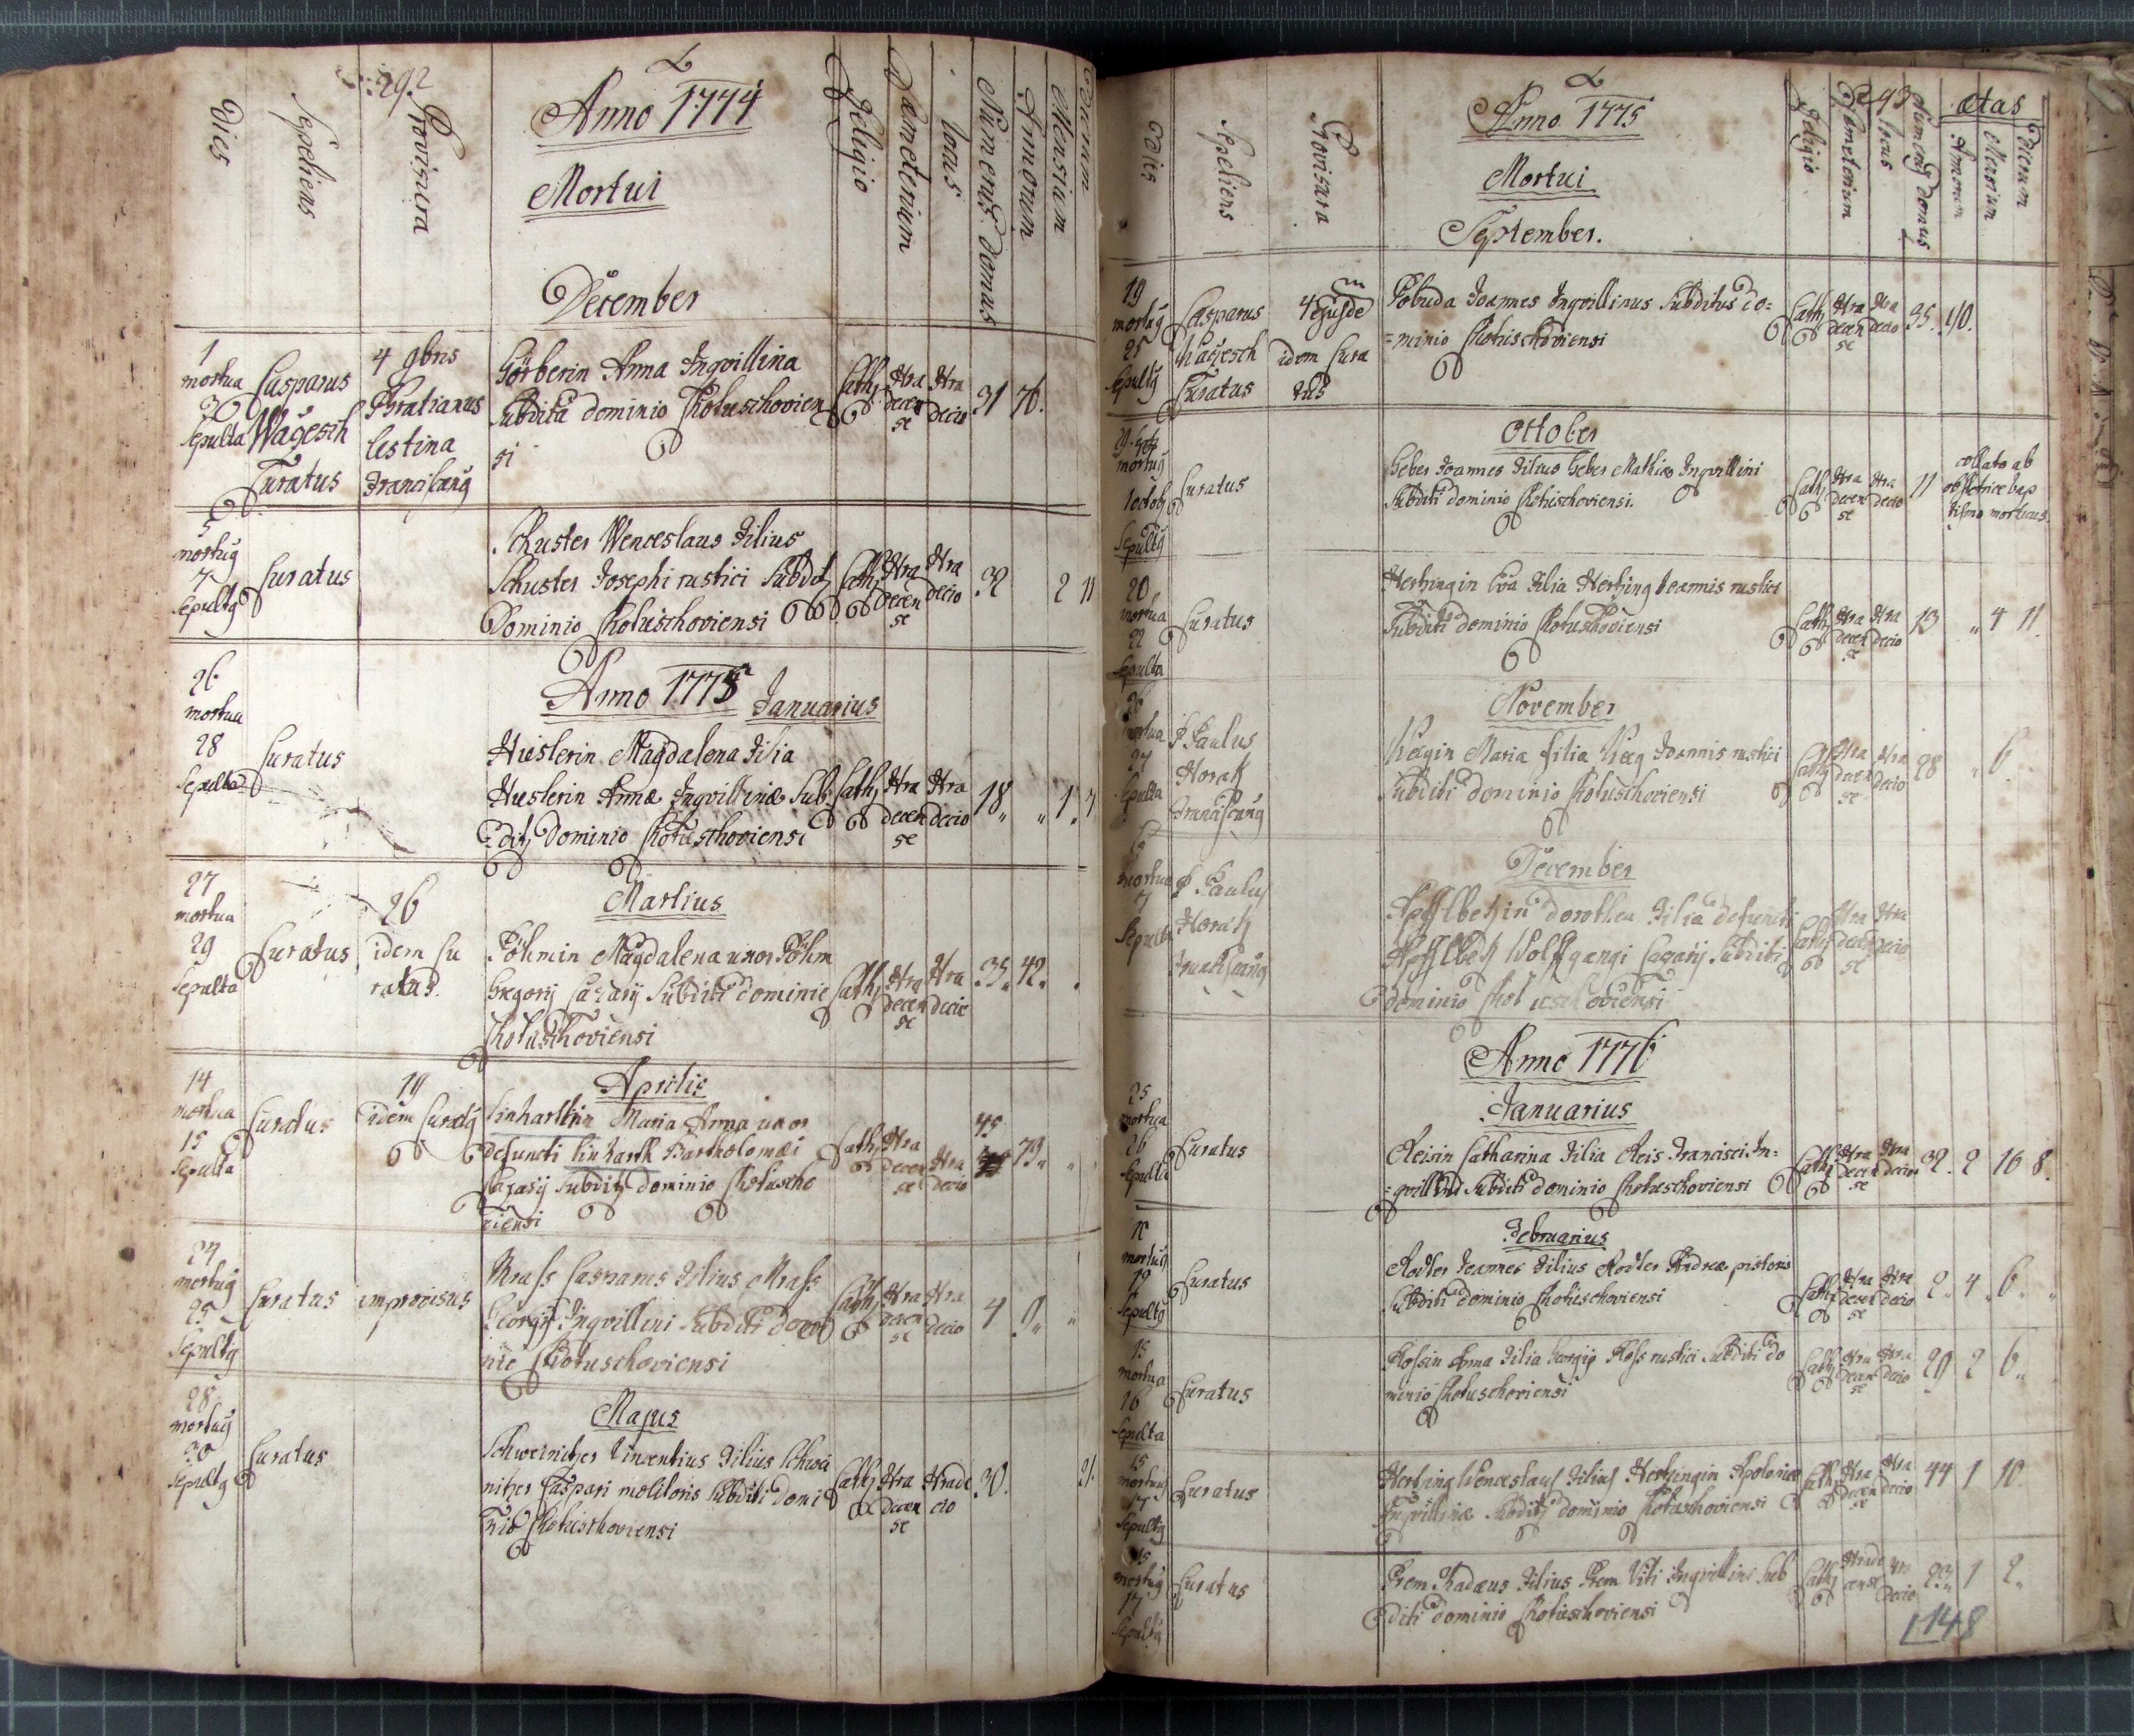 292
Anno 1774
Dies
Sepeliens
Provisura
Mortui
Religio
Cæmeterium
locus
Numerus Domus
Annorum
Mensium
Dierum
December
1 mortua
Casparus Wagesch Curatus
4 9bris
Franciscang
Görberin Anna Ingvillina
Subdita dominio Chotieschovien
si
Cath. Hra decen se Hra decio 31 76.
5 mortug
7 Sepultg
Curatus
Schuster Wenceslaus Filius
Schuster Josephi rustici Subditi
Dominio Chotieschoviensi
Cath. Hra decen se Hra decio 32 2 11
Anno 1775 Januarius
26 mortua
28 Sepulta
Curatus
Hieslerin Magdalena Filia
Hieslerin Annæ Ingvillinæ Sub
ditæ Dominio Chotieschoviensi
Cath. Hra decen se Hra decio 18 " 1
Martius
27 mortua
29 Sepulta
Curatus
26
idem Cu
ratus.
Böhmin Magdalena uxor Böhm
Gregorij Casarij Subditi dominio
Chotieschoviensi
Cath. Hra decen se Hra decio 35. 42.
Aprilis
14 mortua
15 Sepulta
Curatus
idem Curatg
Linharthin Maria Anna uxor
defuncti Linharth Bartholomæi
Casarij Subditi dominio Chotiescho
viensi
Cath. Hra decen se Hra decio 45 73
24 mortug
25 Sepultg
Curatus
improvisus
Krass Casparus Filius Krass
Georgij Ingvillini Subditi domi
nio Chotieschoviensi
Cath. Hra decen se Hra decio 4
Majus
28 mortug
30 Sepultg
Curatus
Schweinitzer Vincentius Filius Schwei
nitzer Caspari molitoris Subditi domi
nio Chotieschoviensi
Cath. Hra decen se Hrade cio 30. 21.
293
Anno 1775
Dies
Sepeliens
Provisura
Mortui
September.
Religio
Cæmeterium
locus
Numerus Domus
ætas
Annorum
Mensium
Dierum
19 mortug
25 Sepultg
Casparus Wagesch Curatus
4 ejusdem
idem Cura
tus
Pobuda Joannes Ingvillinus Subditus do=
=minio Chotieschoviensi
Cath. Hra decen se Hra decio 35. 40.
October
mortug
1 octob
Sepultg
Curatus
Geber Joannes Filius Geber Mathiæ Ingvillini
Subditi dominio Chotieschoviensi.
Cath. Hra decen se Hra decio 11
collato ab
obstetrice bap
tismo mortuus.
20 mortua
22 Sepulta
Curatus
Hertzingin Eva Filia Hertzing Joannis rustici
Subditi dominio Chotieschoviensi
Cath. Hra decen se Hra decio 13 " 4 11.
November
26 mortua
27 Sepulta
P Paulus
Horak
Franciscang
Keegin Maria filia Keeg Joannis rustici
Subditi dominio Chotieschoviensi
Cath. Hra decen se Hra decio 28 " 6
December
mortua
7 Sepulta
P Paulus
Horak
Franciscang
Apfflbeckin dorothea Filia defuncti
Apfflbeck Wolffgangi Casarij Subditi
dominio Chotieschoviensi
Cath. Hra decen se Hra decio
Anno 1776
Januarius
25 mortua
26 Sepulta
Curatus
Reisin Catharina Filia Reis Francisci In=
=gvillini Subditi dominio Chotieschoviensi
Cath. Hra decen se Hra decio 32. 2 10 8.
Februarius
mortug
12 Sepultg
Curatus
Rodler Joannes Filius Rodler Andreæ pistoris
Subditi dominio Chotieschoviensi
Cath. Hra decen se Hra decio 2 " 4 " 6 "
15 mortua
16 Sepulta
Curatus
Rossin Anna Filia Georgij Ross rustici Subditi do
minio Chotieschoviensi
Cath. Hra decen se Hra decio 29 2 6 "
15 mortuus
17 Sepultg
Curatus
Hertzing Wenceslaus Filius Hertzingin Apoloniæ
Ingvillinæ Subditæ dominio Chotieschoviensi
Cath. Hra decen se Hra decio 44 1 10.
15 mortug
17 Sepultg
Curatus
Prem Thadæus Filius Prem Viti Ingvillini Sub
diti dominio Chotieschoviensi
Cath. Hrade cense Hra decio 23 1 2 "
148